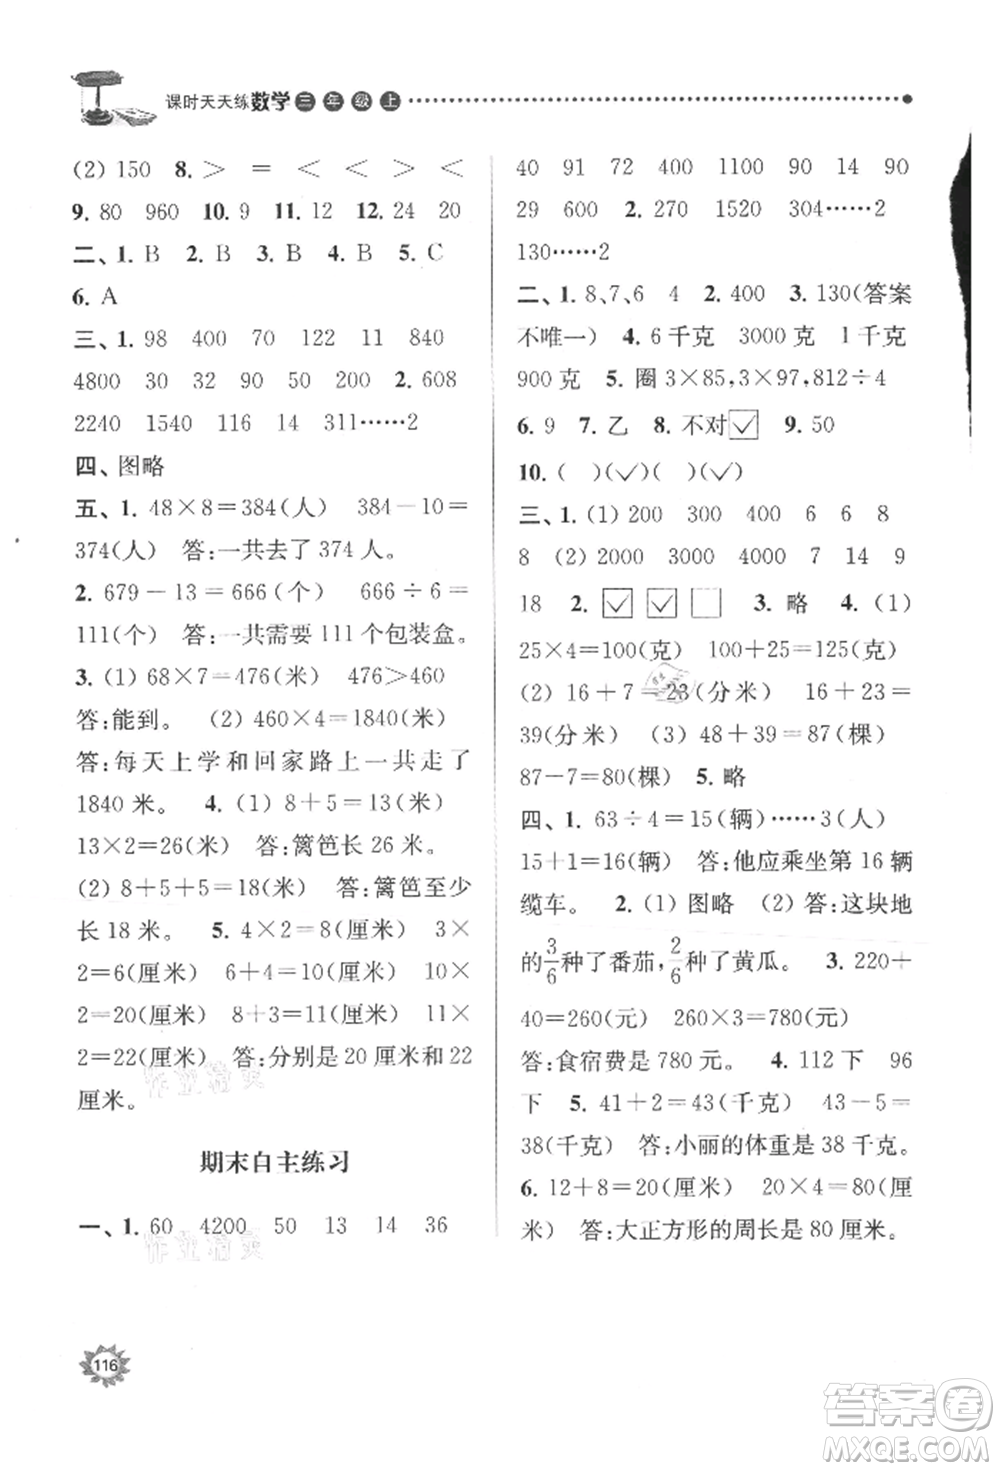 课时天天练数学三年级上
(2) 150 8. > = < < > <
9. 80 960 10. 9 11. 12 12. 24 20
二、1. B 2. B 3. B 4. B 5. C
6. A
三、1. 98 400 70 122 11 840
4800 30 32 90 50 200 2. 608
2240 1540 116 14 311……2
四、图略
五、1. 48×8=384(人) 384-10=
374(人) 答:一共去了 374 人。
2. 679-13=666(个) 666÷6=
111(个) 答:一共需要 111 个包装盒。
3. (1) 68×7=476(米) 476>460
答:能到。 (2) 460×4=1840(米)
答:每天上学和回家路上一共走了
1840 米。 4. (1) 8+5=13(米)
13×2=26(米) 答:篱笆长 26 米。
(2) 8+5+5=18(米) 答:篱笆至少
长 18 米。 5. 4×2=8(厘米) 3×
2=6(厘米) 6+4=10(厘米) 10×
2=20(厘米) 8+3=11(厘米) 11×
2=22(厘米) 答:分别是 20 厘米和 22
厘米。
作业精灵
期末自主练习
一、1. 60 4200 50 13 14 36
作业精灵
40 91 72 400 1100 90 14 90
29 600 2. 270 1520 304……2
130……2
二、1. 8,7、6 4 2. 400 3. 130(答案
不唯一) 4. 6 千克 3000 克 1 千克
900 克 5. 圈 3×85,3×97,812÷4
6. 9 7. 乙 8. 不对☑ 9. 50
10. ( )(✓)( )(✓)
三、1. (1) 200 300 400 6 6 8
8 (2) 2000 3000 4000 7 14 9
18 2. ☑ ☑ □ 3. 略 4. (1)
25×4=100(克) 100+25=125(克)
(2) 16+7=23(分米) 16+23=
39(分米) (3) 48+39=87(棵)
87-7=80(棵) 5. 略
四、1. 63÷4=15(辆)……3(人)
15+1=16(辆) 答:他应乘坐第 16 辆
缆车。 2. (1) 图略 (2) 答:这块地
的3/6种了番茄,2/6种了黄瓜。 3. 220+
40=260(元) 260×3=780(元)
答:食宿费是 780 元。 4. 112 下 96
下 5. 41+2=43(千克) 43-5=
38(千克) 答:小丽的体重是 38 千克。
6. 12+8=20(厘米) 20×4=80(厘
米) 答:大正方形的周长是 80 厘米。
116
答案卷
MXQE.COM